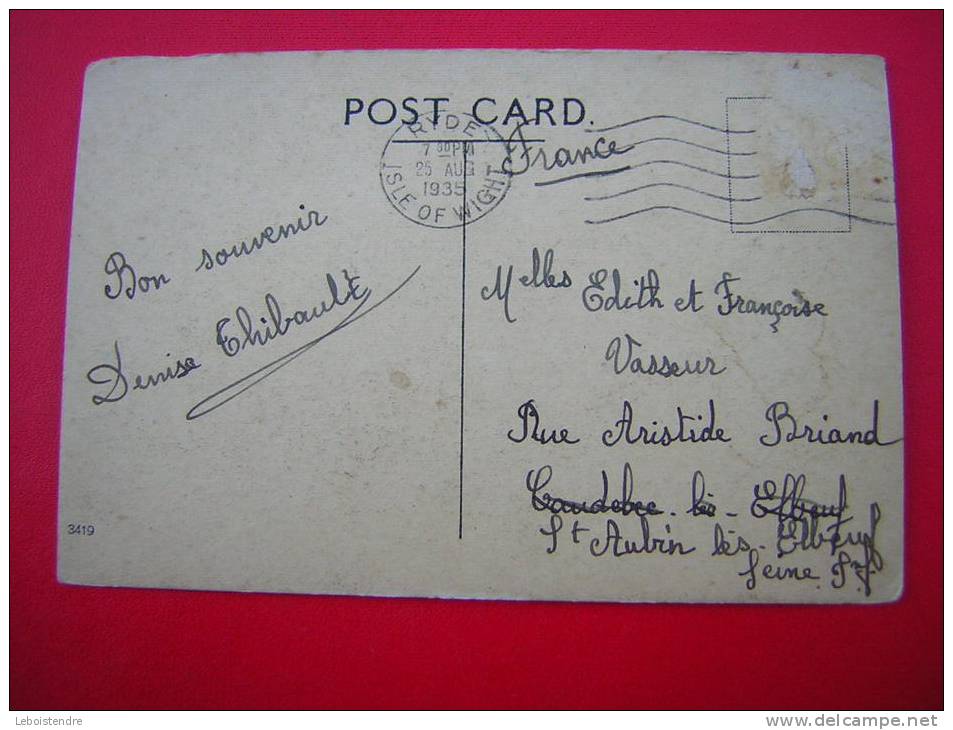 POST CARD.
RYDE
7 30 PM
25 AUG
1935
ISLE OF WIGHT
France
Bon souvenir
Denise Thibault
Melles Edith et Françoise
Vasseur
Rue Aristide Briand
Caudebec-lès-Elbeuf
St Aubin lès-Elbeuf
Seine Inf
3419
Leboistendre
www.delcampe.net